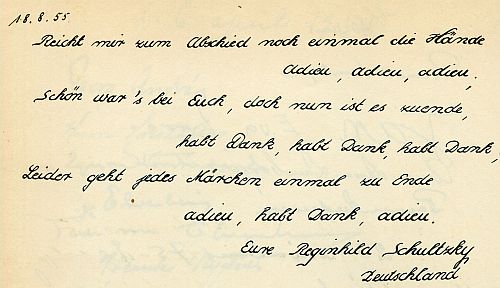 18.8.55
Reicht mir zum Abschied noch einmal die Hände
adieu, adieu, adieu.
Schön war's bei Euch, doch nun ist es zuende,
habt Dank, habt Dank, habt Dank,
Leider geht jedes Märchen einmal zu Ende
adieu, habt Dank, adieu.
Eure Reginhild Schultzky
Deutschland